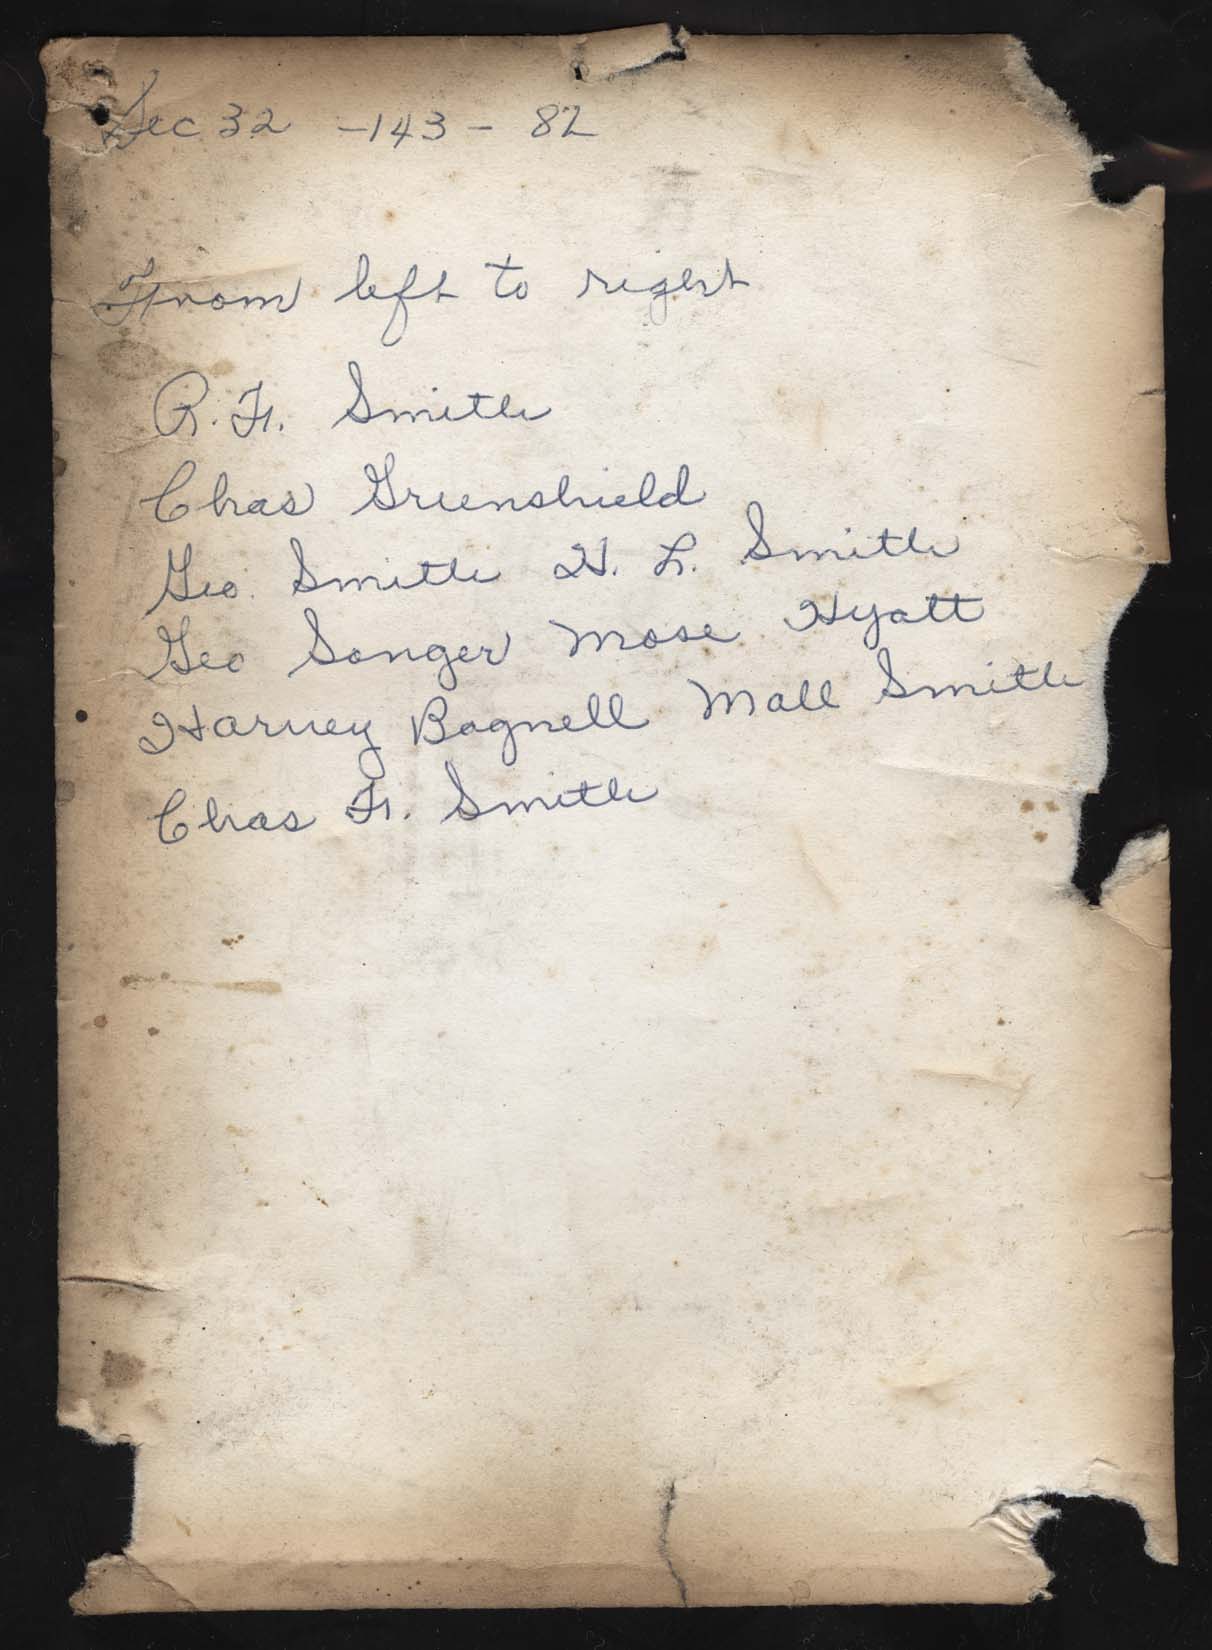 Sec 32 - 143 - 82
From left to right
R. F. Smith
Chas Greenshield
Geo. Smith H. L. Smith
Geo Songer Mose Hyatt
Harvey Bagnell Mall Smith
Chas F. Smith